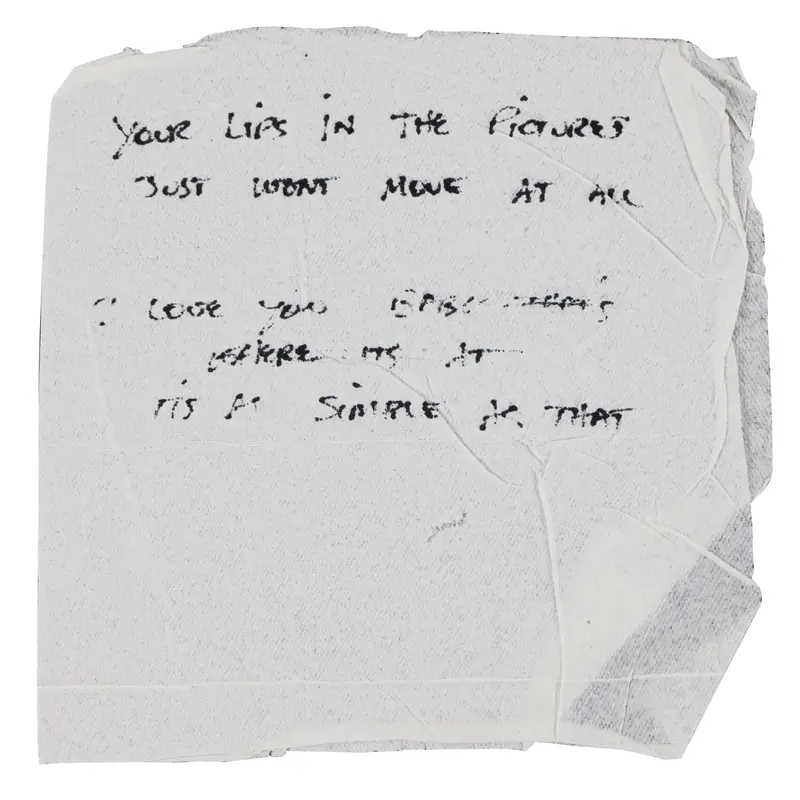 YOUR LIPS IN THE PICTURES
JUST WONT MOVE AT ALL
I LOVE YOU BABY THAT'S
WHERE ITS AT
ITS AS SIMPLE AS THAT